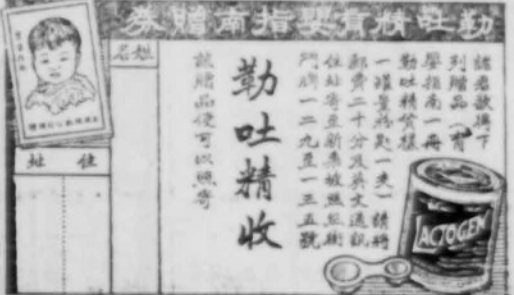 勒吐精育嬰指南贈券
諸君欲換下
列贈品（育
嬰指南一冊
勒吐精貨樣
一罐量匙一夾）請將
郵費二十分及英文通訊
住址寄至新
門牌一二九至一三五號
勒吐精收
該贈品便可以照寄
姓名
住址
LACTOGEN